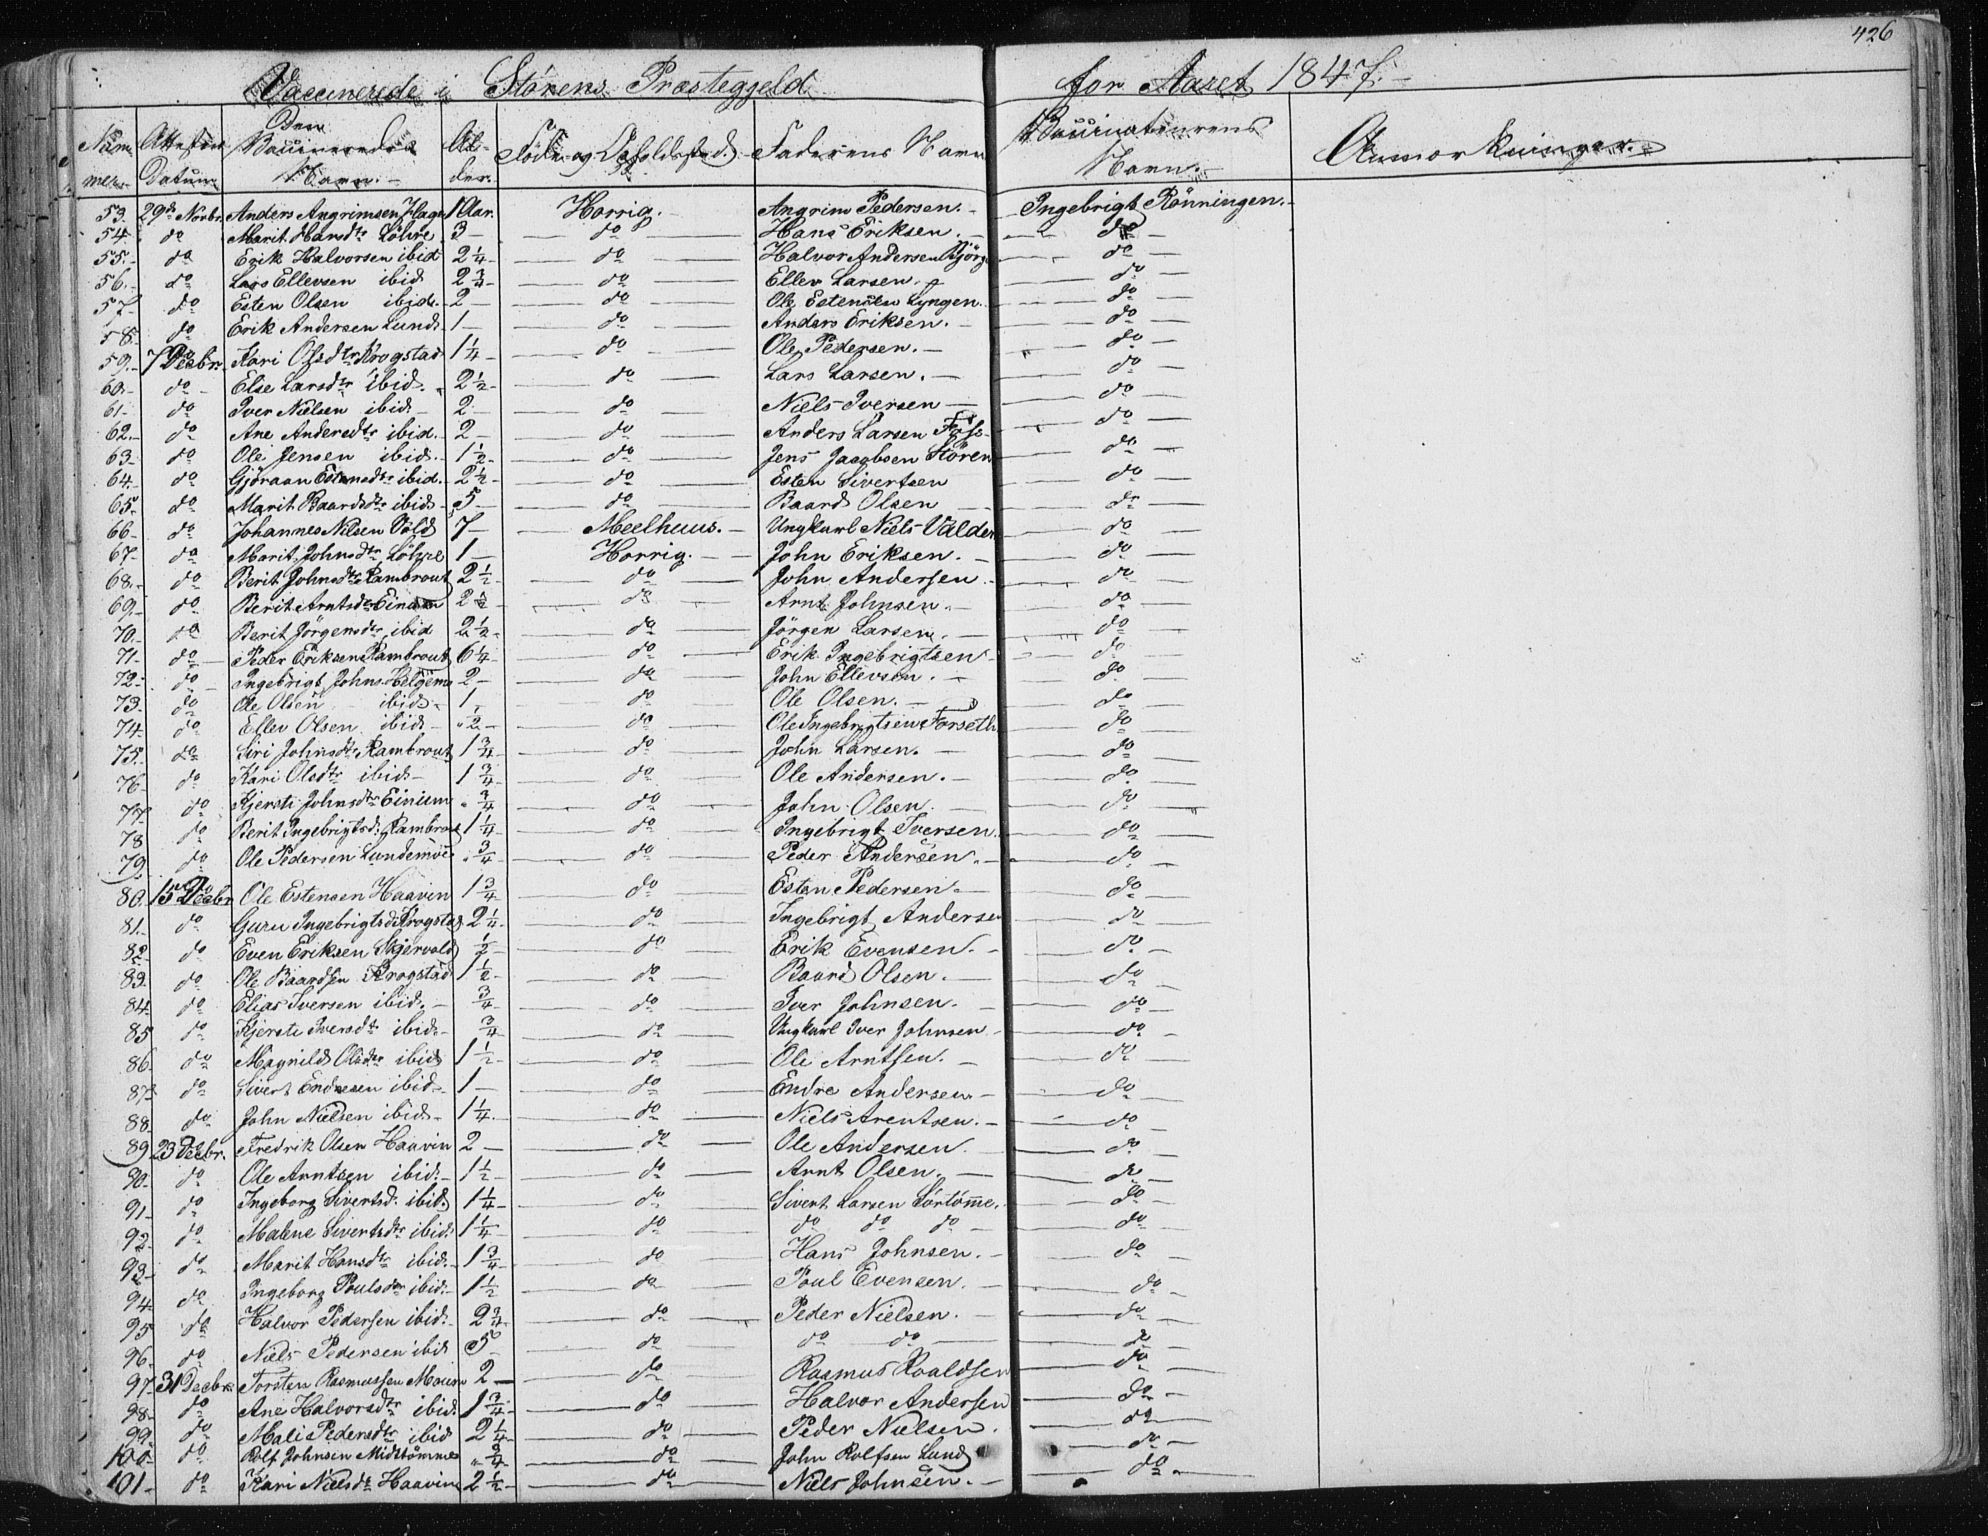 426
Vaccinerede i Störens Præsteggeld for Aaret 1847.
Nummer Attestens Datum Den Vaccineredes Navn. Alder. Föde- og Opholdssted. Faderens Navn Vaccinateurens Navn. Anmærkninger.
53. 29de Novbr. Anders Angrimsen Hage 1 Aar. Horrig. Angrim Pedersen. Ingebrigt Rönningen.
54. do Marit Hansdtr Löhre 3 do Hans Eriksen. do
55. do Erik Halvorsen ibid 2 1/4 do Halvor Andersen do
56. do Lars Ellevsen ibid 2 3/4 do Ellev Larsen. do
57. do Esten Olsen ibid. 2 do Ole Estensen Lyngen. do
58. do Erik Andersen Lund. 1 do Anders Eriksen. do
59. 7de Decbr. Kari Olsdtr Krogstad 1 1/4 do Ole Pedersen. do
60. do Else Larsdtr ibid. 2 1/2 do Lars Larsen. do
61. do Iver Nielsen ibid. 2 do Niels Iversen do
62. do Ane Andersdtr ibid. 2 do Anders Larsen do
63. do Ole Jensen ibid. 1 1/2 do Jens Jacobsen Stören do
64. do Gjöraan Estensdtr ibid. 2 1/2 do Esten Sivertsen do
65. do Marit Baardsdtr ibid. 5 do Baard Olsen do
66. do Johannes Nilsen 7 Meelhuus. Ungkarl Niels Valden do
67. do Marit Johnsdtr Löhre 1 Horrig. John Eriksen. do
68. do Berit Johnsdtr Rambrout 2 1/2 do John Andersen do
69. do Berit Arntsdtr 2 1/2 do Arnt Johnsen. do
70. do Berit Jörgensdtr ibid 2 1/2 do Jörgen Larsen. do
71. do Peder Eriksen Rambrout 6 1/4 do Erik Ingebrigtsen do
72. do Ingebrigt Johns. 2 do John Ellevsen. do
73. do Ole Olsen ibid. 1 do Ole Olsen. do
74. do Ellev Olsen ibid. 2 do Ole Ingebrigtsen Forseth do
75. do Siri Johnsdtr Rambrout 1 3/4 do John Larsen. do
76. do Kari Olsdtr ibid. 1 3/4 do Ole Andersen. do
77. do Kjersti Johnsdtr Einium 3/4 do John Olsen. do
78. do Berit Ingebrigtsd. Rambrout 1 1/4 do Ingebrigt Iversen. do
79. do Ole Pedersen Lundemoe 3/4 do Peder Andersen. do
80. 15de Decbr Ole Estensen Haavin 1 3/4 do Esten Pedersen. do
81. do Guru Ingebrigtsd. Krogstad 2 1/4 do Ingebrigt Andersen do
82. do Even Eriksen Skjervold 1/2 do Erik Evensen. do
83. do Ole Baardsen Krogstad 1 1/2 do Baard Olsen. do
84. do Elias Iversen ibid. 3/4 do Iver Johnsen. do
85 do Kjersti Iversdtr ibid. 3/4 do Ungkarl Iver Johnsen. do
86. do Magnild Olsdtr ibid 1 1/2 do Ole Arntsen. do
87. do Sivert Endresen ibid. 1 do Endre Andersen. do
88. do John Nielsen ibid. 1 1/4 do Niels Arentsen. do
89. 23 Decbr. Fredrik Olsen Haavin 2 do Ole Andersen. do
90. do Ole Arntsen ibid. 1 1/2 do Arnt Olsen. do
91. do Ingeborg Sivertsd. ibid. 1 1/4 do Sivert Larsen Sörtömme. do
92. do Malene Sivertsdtr ibid. 1 1/4 do do do do do
93. do Marit Hansdtr ibid. 1 3/4 do Hans Johnsen. do
94. do Ingeborg Poulsdtr ibid. 1 1/2 do Poul Evensen. do
95 do Halvor Pedersen ibid. 2 3/4 do Peder Nielsen. do
96. do Niels Pedersen ibid 5 do do do do
97. 31 Decbr. Torsten Rasmussen 2 do Rasmus Roaldsen do
98. do Ane Halvorsdtr ibid. 1 3/4 do Halvor Andersen do
99. do Mali Pedersdtr ibid 2 1/4 do Peder Nielsen. do
100. do Rolf Johnsen Midttömme 3/4 do John Rolfsen Lund do
101 do Kari Nielsdtr Haavin 2 1/2 do Niels Johnsen. do